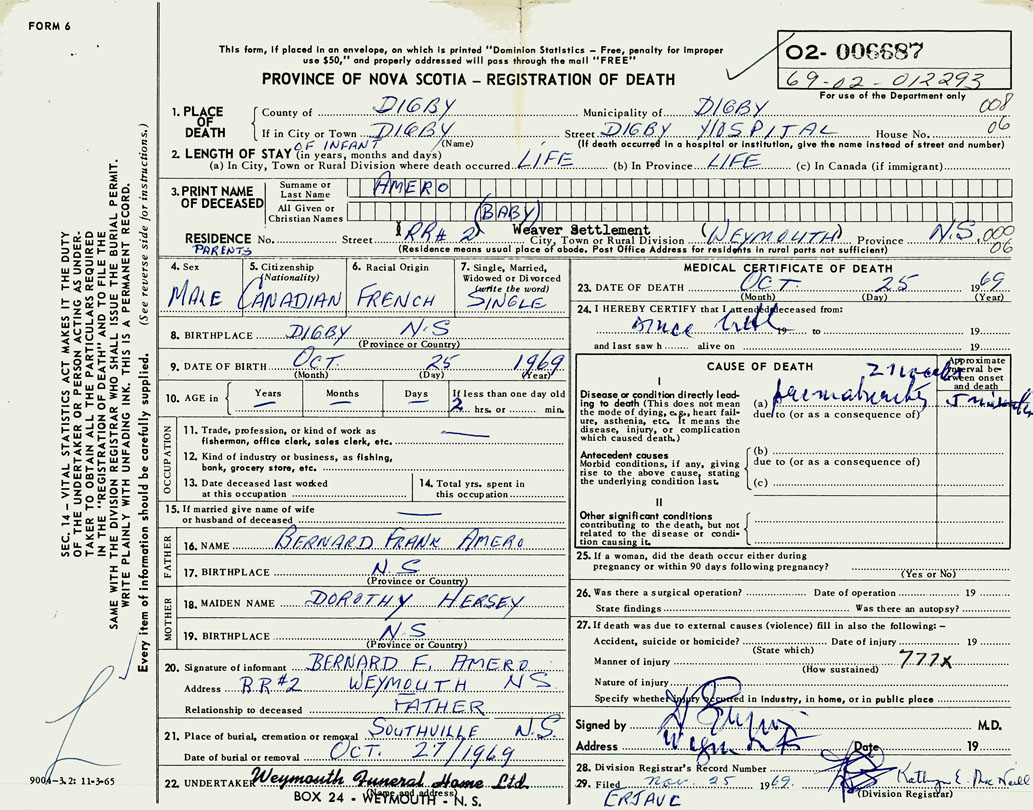 FORM 6
This form, if placed in an envelope, on which is printed "Dominion Statistics – Free, penalty for improper
use $50," and properly addressed will pass through the mail "FREE"
PROVINCE OF NOVA SCOTIA – REGISTRATION OF DEATH
02- 006687
69-02-012293
For use of the Department only
008
06
1. PLACE OF DEATH
County of DIGBY Municipality of DIGBY
If in City or Town DIGBY Street DIGBY HOSPITAL House No.
(Name) (If death occurred in a hospital or institution, give the name instead of street and number)
OF INFANT
2. LENGTH OF STAY (in years, months and days)
(a) In City, Town or Rural Division where death occurred LIFE (b) In Province LIFE (c) In Canada (if immigrant)
3. PRINT NAME OF DECEASED
Surname or Last Name AMERO
All Given or Christian Names (BABY)
RESIDENCE No. Street RR# 2 Weaver Settlement City, Town or Rural Division (WEYMOUTH) Province N.S. 000
06
PARENTS
(Residence means usual place of abode. Post Office Address for residents in rural parts not sufficient)
4. Sex
MALE
5. Citizenship (Nationality)
CANADIAN
6. Racial Origin
FRENCH
7. Single, Married, Widowed or Divorced (write the word)
SINGLE
8. BIRTHPLACE DIGBY N.S
(Province or Country)
9. DATE OF BIRTH OCT. 25 1969
(Month) (Day) (Year)
10. AGE in Years Months Days If less than one day old
2 hrs. or min.
OCCUPATION
11. Trade, profession, or kind of work as
fisherman, office clerk, sales clerk, etc.
12. Kind of industry or business, as fishing,
bank, grocery store, etc.
13. Date deceased last worked
at this occupation
14. Total yrs. spent in
this occupation
15. If married give name of wife
or husband of deceased
FATHER
16. NAME BERNARD FRANK AMERO
17. BIRTHPLACE N.S
(Province or Country)
MOTHER
18. MAIDEN NAME DOROTHY HERSEY
19. BIRTHPLACE N.S
(Province or Country)
20. Signature of informant BERNARD F. AMERO
Address RR#2 WEYMOUTH NS
Relationship to deceased FATHER
21. Place of burial, cremation or removal SOUTHVILLE N.S.
Date of burial or removal OCT. 27/1969
22. UNDERTAKER Weymouth Funeral Home Ltd.
(Name and address)
BOX 24 - WEYMOUTH - N. S.
MEDICAL CERTIFICATE OF DEATH
23. DATE OF DEATH OCT 25 1969
(Month) (Day) (Year)
24. I HEREBY CERTIFY that I attended deceased from:
since birth 19 to 19
and last saw h alive on 19
CAUSE OF DEATH
Approximate interval between onset and death
I
Disease or condition directly leading to death (This does not mean the mode of dying, e.g., heart failure, asthenia, etc. It means the disease, injury, or complication which caused death.)
(a) prematurity
due to (or as a consequence of)
Antecedent causes
Morbid conditions, if any, giving rise to the above cause, stating the underlying condition last.
(b)
due to (or as a consequence of)
(c)
II
Other significant conditions
contributing to the death, but not related to the disease or condition causing it.
25. If a woman, did the death occur either during
pregnancy or within 90 days following pregnancy?
(Yes or No)
26. Was there a surgical operation? Date of operation 19
State findings Was there an autopsy?
27. If death was due to external causes (violence) fill in also the following: –
Accident, suicide or homicide? Date of injury 19
(State which)
Manner of injury 777X
(How sustained)
Nature of injury
Specify whether injury occurred in Industry, in home, or in public place
Signed by M.D.
Address Weymouth Date 19
28. Division Registrar's Record Number
29. Filed Nov. 25 1969.
(Division Registrar)
SEC. 14 – VITAL STATISTICS ACT MAKES IT THE DUTY
OF THE UNDERTAKER OR PERSON ACTING AS UNDER-
TAKER TO OBTAIN ALL THE PARTICULARS REQUIRED
IN THE "REGISTRATION OF DEATH" AND TO FILE THE
SAME WITH THE DIVISION REGISTRAR WHO SHALL ISSUE THE BURIAL PERMIT.
WRITE PLAINLY WITH UNFADING INK. THIS IS A PERMANENT RECORD.
Every item of information should be carefully supplied. (See reverse side for instructions.)
9004-3.2: 11-3-65